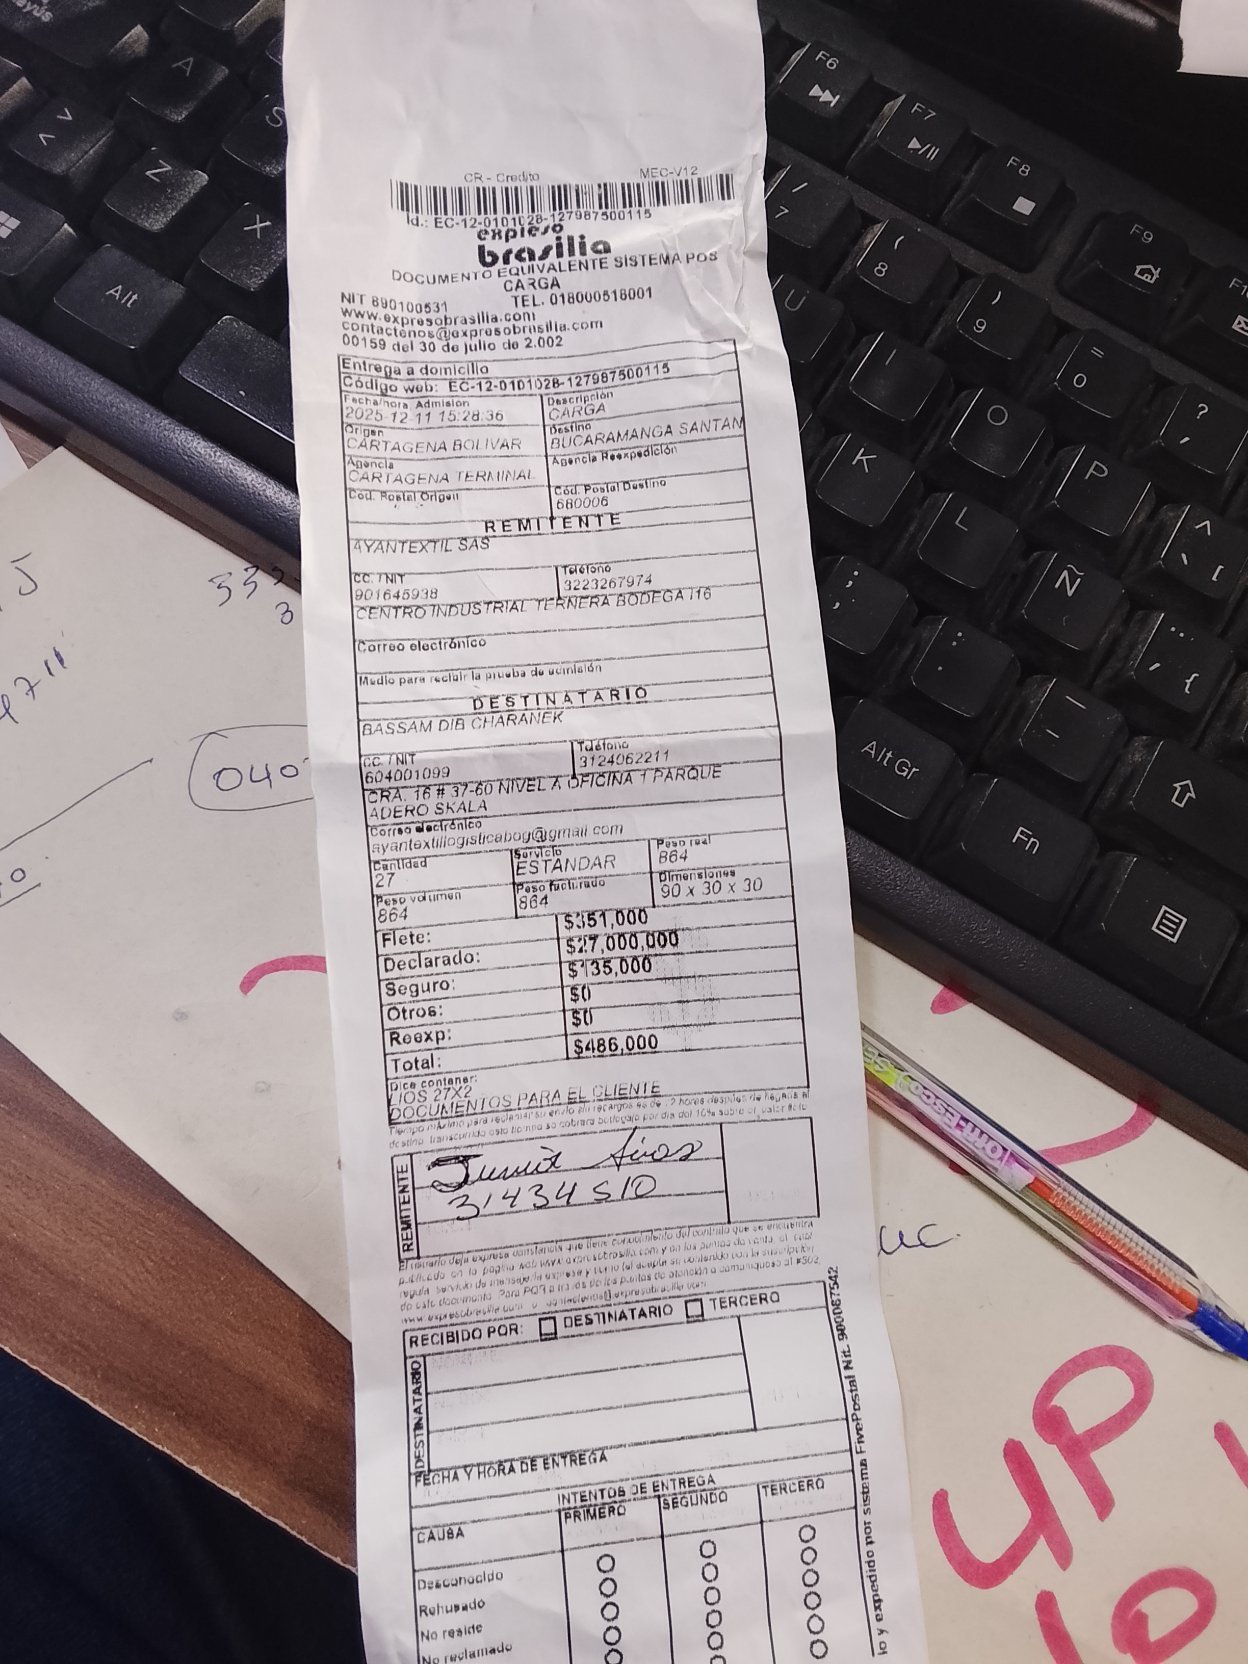 CR - Credito MEC-V12
Id.: EC-12-0101028-127987500115
expreso
brasilia
DOCUMENTO EQUIVALENTE SISTEMA POS
CARGA
NIT 890100531 TEL. 018000518001
www.expresobrasilia.com
contactenos@expresobrasilia.com
00159 del 30 de julio de 2.002
Entrega a domicilio
Código web: EC-12-0101028-127987500115
Fecha/hora Admision Descripción
2025-12-11 15:28:36 CARGA
Origen Destino
CARTAGENA BOLIVAR BUCARAMANGA SANTAN
Agencia Agencia Reexpedición
CARTAGENA TERMINAL
Cod. Postal Origen Cod. Postal Destino
680006
REMITENTE
AYANTEXTIL SAS
CC. / NIT Teléfono
901645938 3223267974
CENTRO INDUSTRIAL TERNERA BODEGA I16
Correo electrónico
Medio para recibir la prueba de admisión
DESTINATARIO
BASSAM DIB CHARANEK
CC. / NIT Teléfono
604001099 3124062211
CRA. 16 # 37-60 NIVEL A OFICINA 1 PARQUE
ADERO SKALA
Correo electrónico
ayantextillogisticabog@gmail.com
Cantidad Servicio Peso real
27 ESTANDAR 864
Peso volumen Peso facturado Dimensiones
864 864 90 x 30 x 30
Flete: $351,000
Declarado: $27,000,000
Seguro: $135,000
Otros: $0
Reexp: $0
Total: $486,000
Dice contener:
LIOS 27X2
DOCUMENTOS PARA EL CLIENTE
Tiempo máximo para reclamar su envío sin recargos es de 72 horas después de llegada al
destino, transcurrido este término se cobrara bodegaje por día del 10% sobre el valor flete
REMITENTE
31434510
El usuario deja expresa constancia que tiene conocimiento del contrato que se encuentra
publicado en la pagina web www.expresobrasilia.com y en los puntos de venta, el cual
regula servicio de mensajería expresa y
de este documento. Para PQR a través de los puntos de atención o comuniquese al #502,
RECIBIDO POR: DESTINATARIO TERCERO
DESTINATARIO
FECHA Y HORA DE ENTREGA
INTENTOS DE ENTREGA
CAUSA PRIMERO SEGUNDO TERCERO
Desconocido
Rehusado
No reside
No reclamado
io y expedido por sistema FivePostal Nit. 900087542
A
S
Z
X
Alt
F6
F7
F8
F9
/ 7
( 8
) 9
= 0
? '
U
I
O
P
K
L
Ñ
^ [
; ,
: .
¨ ´ {
_ -
Alt Gr
Fn
040
4P
10
uc